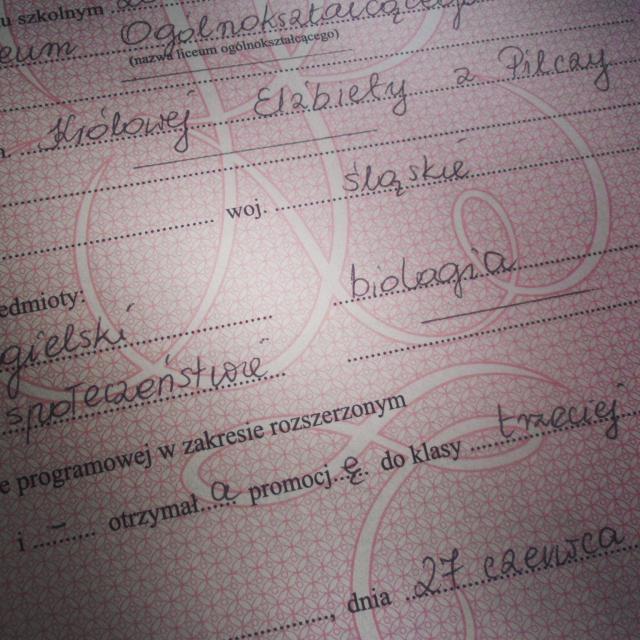 u szkolnym
eum Ogólnokształcącego
(nazwa liceum ogólnokształcącego)
Królowej Elżbiety z Pilczy
woj. śląskie
edmioty:
biologia
gielski
społeczeństwie
e programowej w zakresie rozszerzonym
i – otrzymał a promocj ę do klasy trzeciej
dnia 27 czerwca